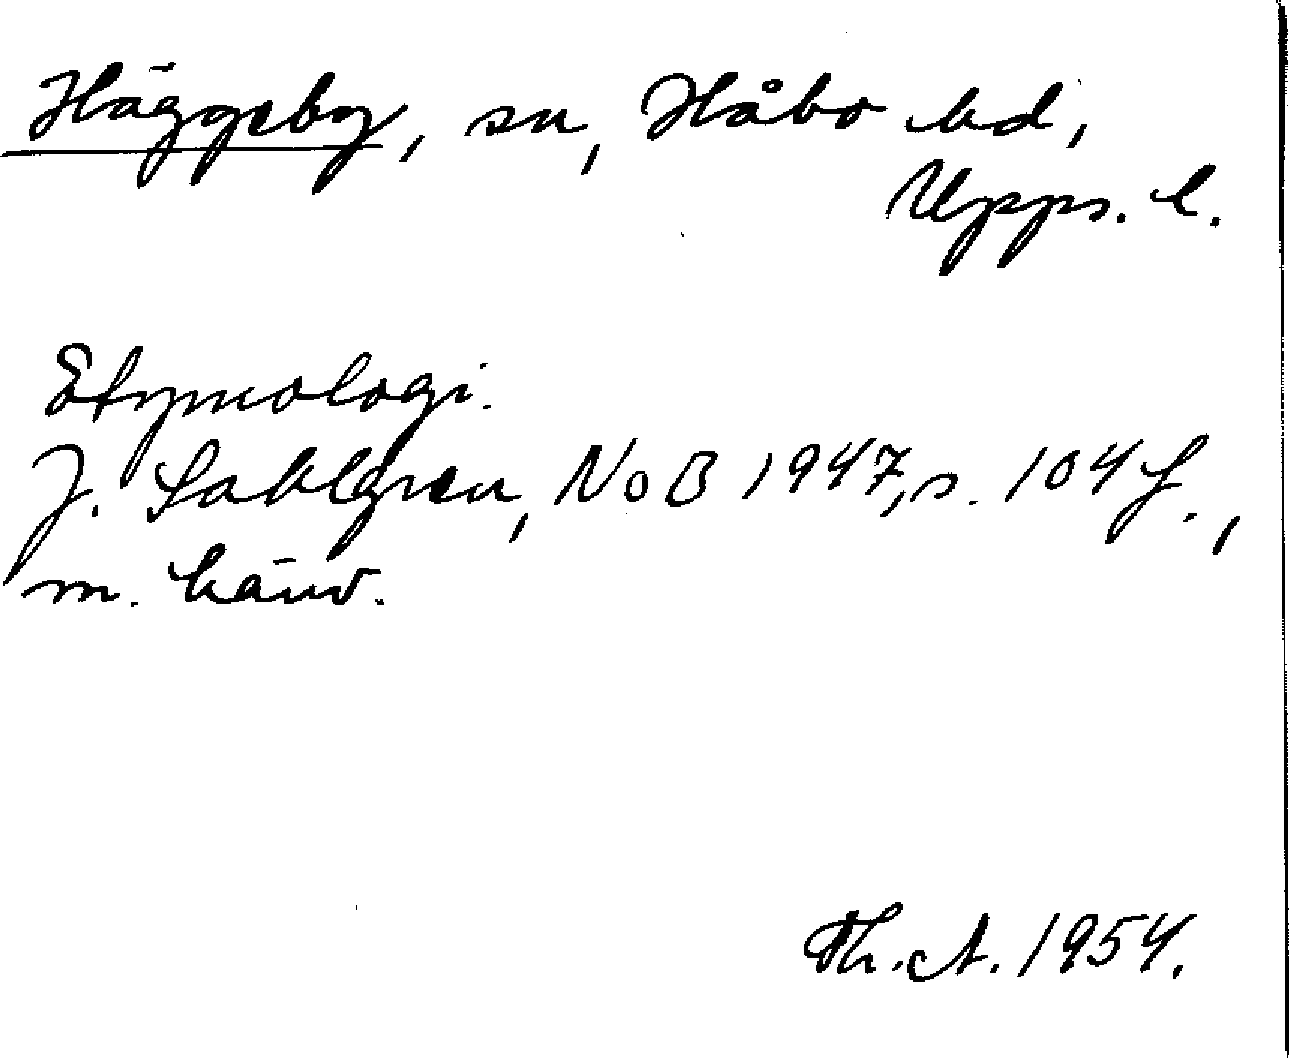 Häggeby, sn, Håbo hd,
Upps. l.
Etymologi.
J. Sahlgren, NoB 1947, s. 104 f.,
m. hänv.
Th. A. 1954.